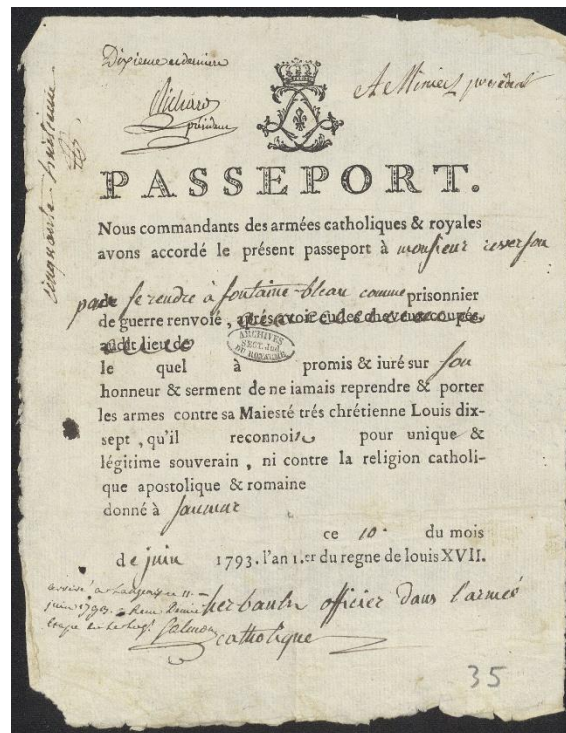 Dixieme et derniere
Richard
président
A Minier président
cinquante huitieme
PASSEPORT.
Nous commandants des armées catholiques & royales
avons accordé le présent passeport à monsieur reverson
pour se rendre à fontaine-bleau comme prisonnier
de guerre renvoié, aprés avoir eu les cheveux coupés,
audit lieu de
ARCHIVES
SECT. Jud.
DU ROYAUME
le quel à promis & iuré sur son
honneur & serment de ne iamais reprendre & porter
les armes contre sa Maiesté trés chrétienne Louis dix-
sept, qu'il reconnois pour unique &
légitime souverain, ni contre la religion catholi-
que apostolique & romaine
donné à Saumur
ce 10. du mois
de juin 1793. l'an 1.er du regne de louis XVII.
herbault officier dans l'armée
catholique
juin 1793.
35